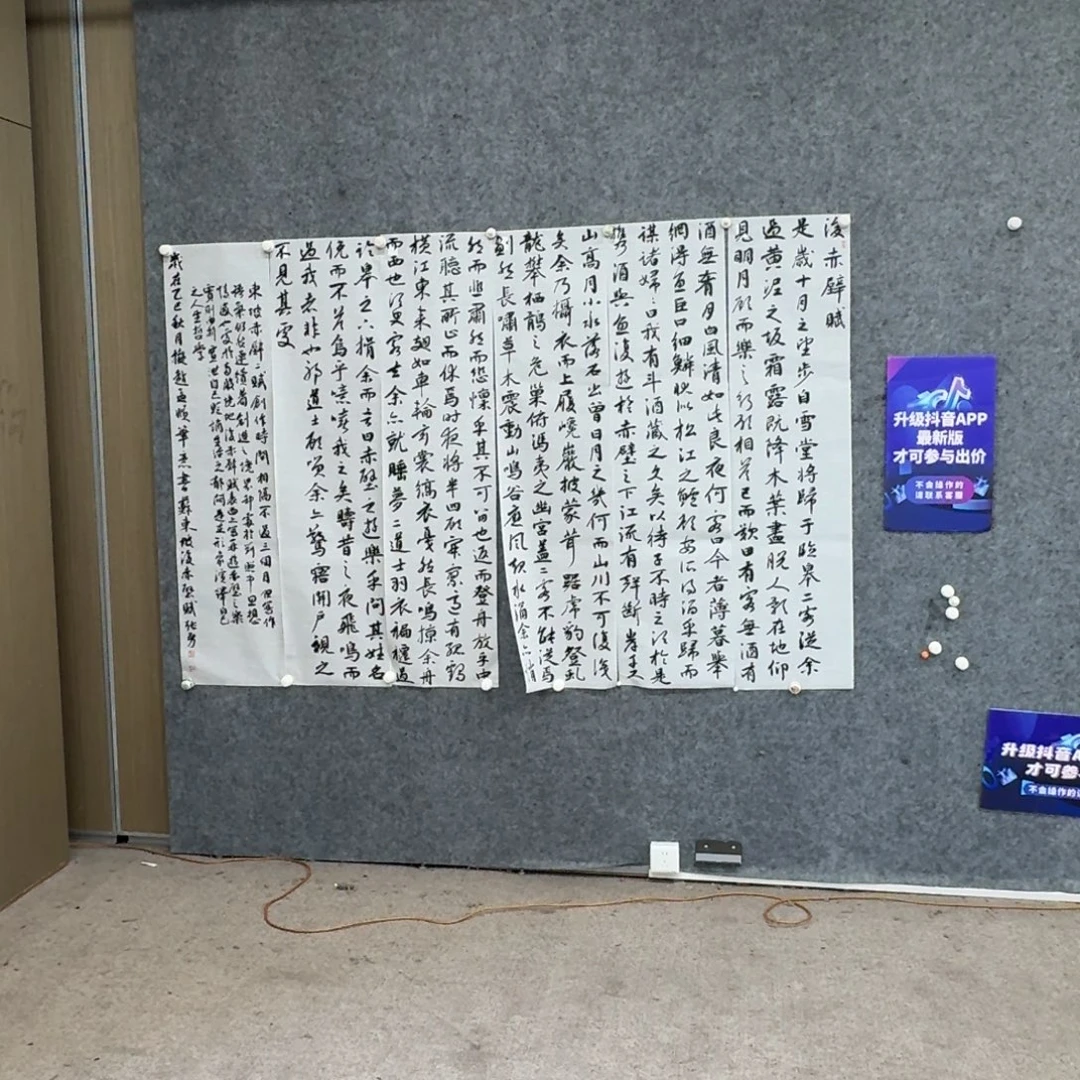 後赤壁賦
是歲十月之望步自雪堂將歸于臨皋二客從余
過黃泥之坂霜露既降木葉盡脫人影在地仰
見明月顧而樂之行歌相答已而歎曰有客無酒有
酒無肴月白風清如此良夜何客曰今者薄暮舉
網得魚巨口細鱗狀似松江之鱸顧安所得酒乎歸而
謀諸婦婦曰我有斗酒藏之久矣以待子不時之須於是
攜酒與魚復遊於赤壁之下江流有聲斷岸千尺
山高月小水落石出曾日月之幾何而山川不可復識
矣余乃攝衣而上履巉巖披蒙茸踞虎豹登虬
龍攀栖鶻之危巢俯馮夷之幽宮蓋二客不能從焉
劃然長嘯草木震動山鳴谷應風起水涌余亦悄
然而悲肅然而恐凜乎其不可留也返而登舟放乎中
流聽其所止而休焉時夜將半四顧寂寥適有孤鶴
橫江東來翅如車輪玄裳縞衣戛然長鳴掠余舟
而西也須臾客去余亦就睡夢二道士羽衣褊褼過
臨皋之下揖余而言曰赤壁之遊樂乎問其姓名
俛而不答嗚呼噫嘻我之矣疇昔之夜飛鳴而
過我者非也邪道士顧笑余亦驚寤開戶視之
不見其處
東坡赤壁二賦創作時間相隔不過三個月但寫作
之人生哲學
歲在乙巳秋月
升级抖音APP
最新版
才可参与出价
不会操作的
请联系客服
升级抖音A
才可参
不会操作的